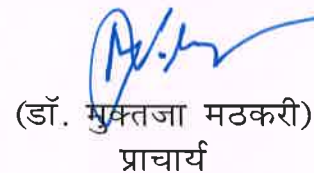 (डॉ. मुक्तजा मठकरी)
प्राचार्य